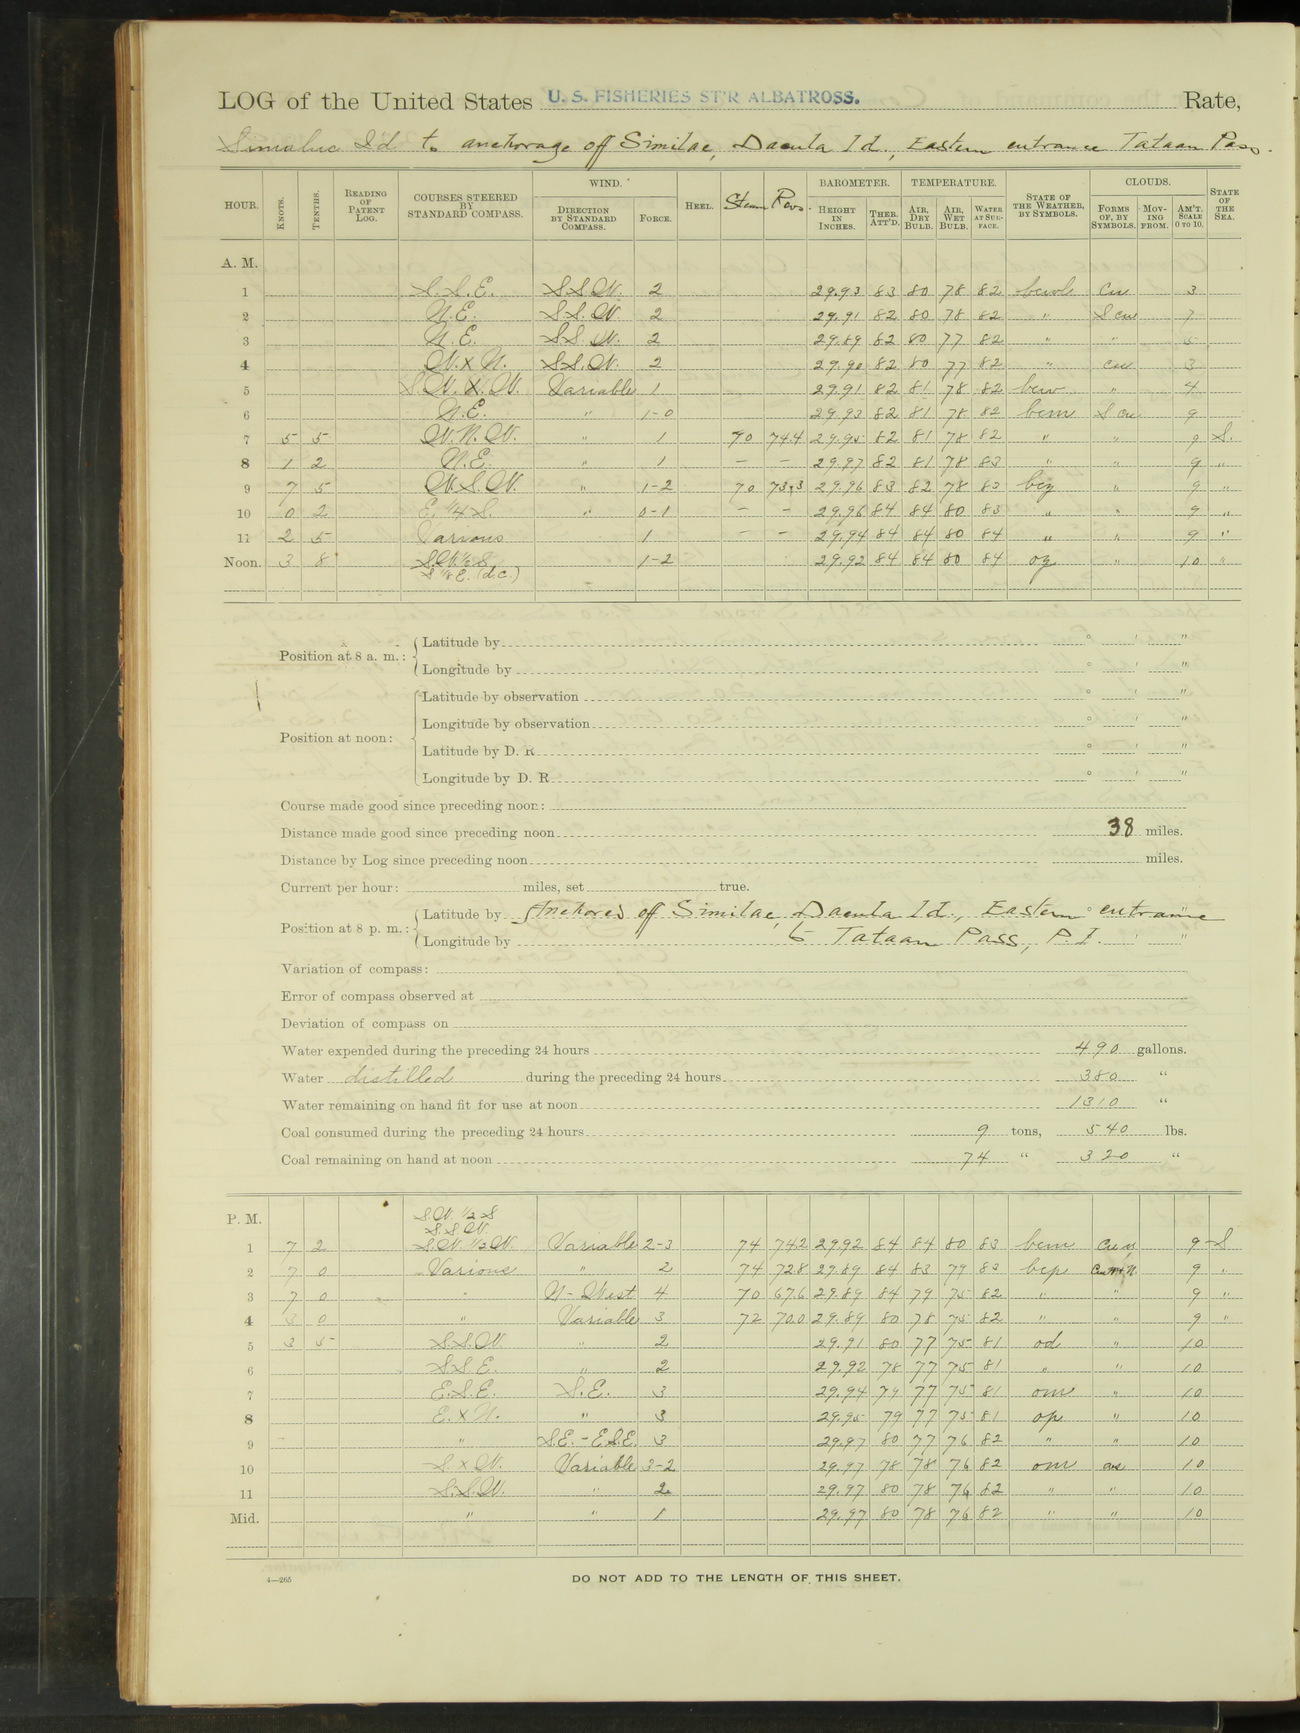 LOG of the United States U. S. FISHERIES ST'R ALBATROSS. Rate,
Simaluc Id to anchorage off Similac, Dacula Id., Eastern entrance Tataan Pass.
HOUR. KNOTS. TENTHS. READING OF PATENT LOG. COURSES STEERED BY STANDARD COMPASS. WIND. DIRECTION BY STANDARD COMPASS. FORCE. HEEL. Steam Revs. BAROMETER. HEIGHT IN INCHES. THER. ATT'D. TEMPERATURE. AIR, DRY BULB. AIR, WET BULB. WATER AT SURFACE. STATE OF THE WEATHER, BY SYMBOLS. CLOUDS. FORMS OF, BY SYMBOLS. MOVING FROM. AM'T. SCALE 0 TO 10. STATE OF THE SEA.
A. M.
1 S.S.E. S.S.W. 2 29.93 83 80 78 82 cu 3
2 N.E. S.S.W. 2 29.91 82 80 78 82 " S cu 7
3 N.E. S.S.W. 2 29.89 82 80 77 82 " " 5
4 W. x N. S.S.W. 2 29.90 82 80 77 82 " cu 3
5 S.W. x W. Variable 1 29.91 82 81 78 82 " 4
6 N.E. " 1-0 29.93 82 81 78 82 bcm S cu 9
7 5 5 W.N.W. " 1 70 74.4 29.95 82 81 78 82 " " 9 S.
8 1 2 N.E. " 1 – – 29.97 82 81 78 83 " " 9 "
9 7 5 W.S.W. " 1-2 70 73.3 29.96 83 82 78 83 bcz " 9 "
10 0 2 E. 1/4 S. " 0-1 – – 29.96 84 84 80 83 " " 9 "
11 2 5 Various 1 – – 29.94 84 84 80 84 " " 9 "
Noon. 3 8 S.W. 1/2 S. 1-2 29.92 84 84 80 84 oz " 10 "
S 1/8 E. (d.c.)
Position at 8 a. m.: Latitude by ° ' "
Longitude by ° ' "
Position at noon: Latitude by observation ° ' "
Longitude by observation ° ' "
Latitude by D. R. ° ' "
Longitude by D. R. ° ' "
Course made good since preceding noon:
Distance made good since preceding noon 38 miles.
Distance by Log since preceding noon miles.
Current per hour: miles, set true.
Position at 8 p. m.: Latitude by Anchored off Similac, Dacula Id., Eastern entrance
Longitude by to Tataan Pass, P.I. ' "
Variation of compass:
Error of compass observed at
Deviation of compass on
Water expended during the preceding 24 hours 490 gallons.
Water distilled during the preceding 24 hours 380 "
Water remaining on hand fit for use at noon 1310 "
Coal consumed during the preceding 24 hours 9 tons, 540 lbs.
Coal remaining on hand at noon 74 " 320 "
P. M. S.W. 1/2 S
S.S.W.
1 7 2 S.W. 1/2 W. Variable 2-3 74 74.2 29.92 84 84 80 83 bcm cu n 9 S
2 7 0 Various " 2 74 72.8 29.89 84 83 79 83 bcp 9 "
3 7 0 " N-West 4 70 67.6 29.89 84 79 75 82 " " 9 "
4 3 0 " Variable 3 72 70.0 29.89 80 78 75 82 " " 9 "
5 3 5 S.S.W. " 2 29.91 80 77 75 81 od " 10
6 S.S.E. " 2 29.92 78 77 75 81 " " 10
7 E.S.E. S.E. 3 29.94 79 77 75 81 om " 10
8 E. x N. " 3 29.95 79 77 75 81 op " 10
9 " S.E.-E.S.E. 3 29.97 80 77 76 82 " " 10
10 S x W. Variable 3-2 29.97 78 78 76 82 om 10
11 S.S.W. " 2 29.97 80 78 76 82 " " 10
Mid. " " 1 29.97 80 78 76 82 " " 10
4—265
DO NOT ADD TO THE LENGTH OF THIS SHEET.